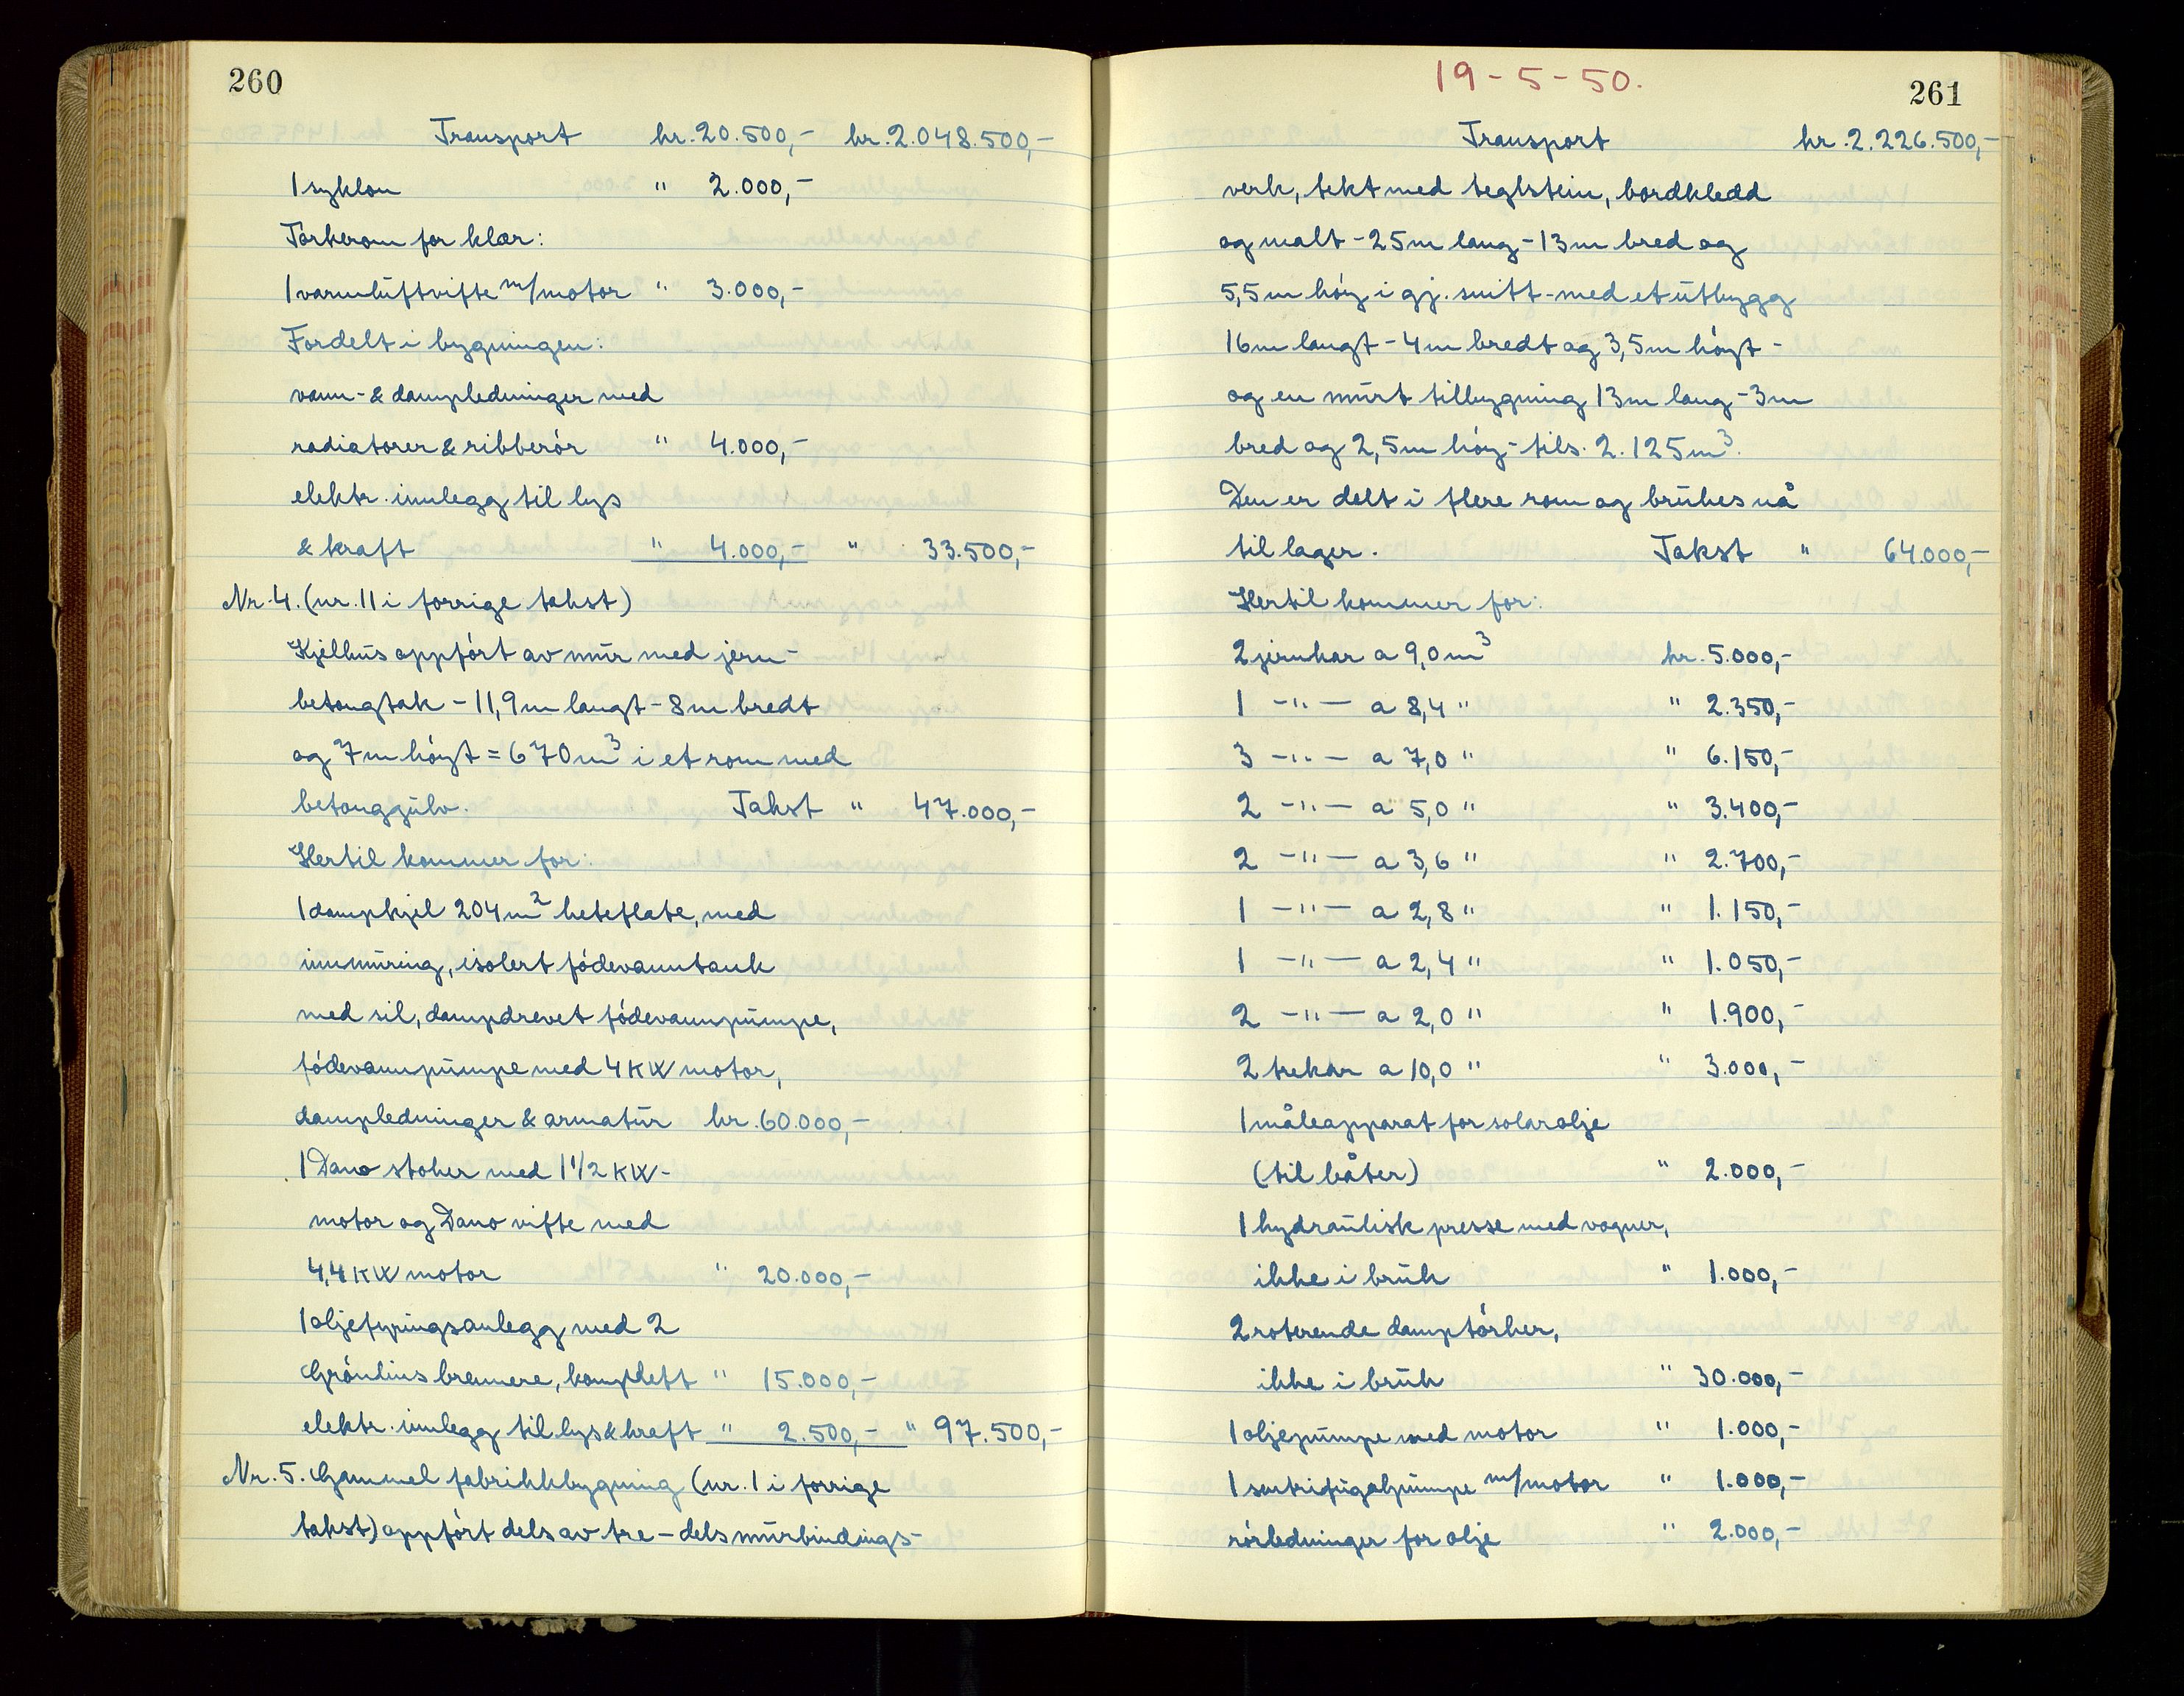 260
Transport kr. 20.500,- kr. 2.048.500,-
1 syklon " 2.000,-
Tørkerom for klær:
1 varmluftvifte m/motor " 3.000,-
Fordelt i bygningen:
vann- & dampledninger med
radiatorer & ribberór " 4.000,-
elektr. innlegg til lys
& kraft " 4.000,- " 33.500,-
Nr. 4. (nr. 11 i forrige takst)
Kjelhus oppfórt av mur med jern-
betongtak - 11,9 m langt - 8 m bredt
og 7 m hóyt = 670 m³ i et rom med
betonggulv. Takst " 47.000,-
Hertil kommer for:
1 dampkjel 204 m² heteflate, med
innmuring, isolert fódevanntank
med sil, dampdrevet fódevannpumpe,
fódevannpumpe med 4 KW motor,
dampledninger & armatur kr. 60.000,-
1 Dano stoker med 1 1/2 KW-
motor og Dano vifte med
4,4 KW motor " 20.000,-
1 oljefyringsanlegg med 2
Gróndins brennere, komplett " 15.000,-
elektr. innlegg til lys & kraft " 2.500,- " 97.500,-
Nr. 5. Gammel fabrikkbygning (nr. 1 i forrige
takst) oppfórt dels av tre - dels murbindings-
19-5-50.
261
Transport kr. 2.226.500,-
verk, tekt med teglstein, bordkledd
og malt - 25 m lang - 13 m bred og
5,5 m hóy i gj. snitt - med et utbygg
16 m langt - 4 m bredt og 3,5 m hóyt -
og en murt tilbygning 13 m lang - 3 m
bred og 2,5 m hóy - tils. 2.125 m³.
Den er delt i flere rom og brukes nå
til lager. Takst " 64.000,-
Hertil kommer for:
2 jernkar a 9,0 m³ kr. 5.000,-
1 -"- a 8,4 " " 2.350,-
3 -"- a 7,0 " " 6.150,-
2 -"- a 5,0 " " 3.400,-
2 -"- a 3,6 " " 2.700,-
1 -"- a 2,8 " " 1.150,-
1 -"- a 2,4 " " 1.050,-
2 -"- a 2,0 " " 1.900,-
2 trekar a 10,0 " " 3.000,-
1 måleapparat for solarolje
(til båter) " 2.000,-
1 hydraulisk presse med vogner,
ikke i bruk " 1.000,-
2 roterende damptórker,
ikke i bruk " 30.000,-
1 oljepumpe med motor " 1.000,-
1 sentrifugalpumpe m/motor " 1.000,-
rórledninger for olje " 2.000,-